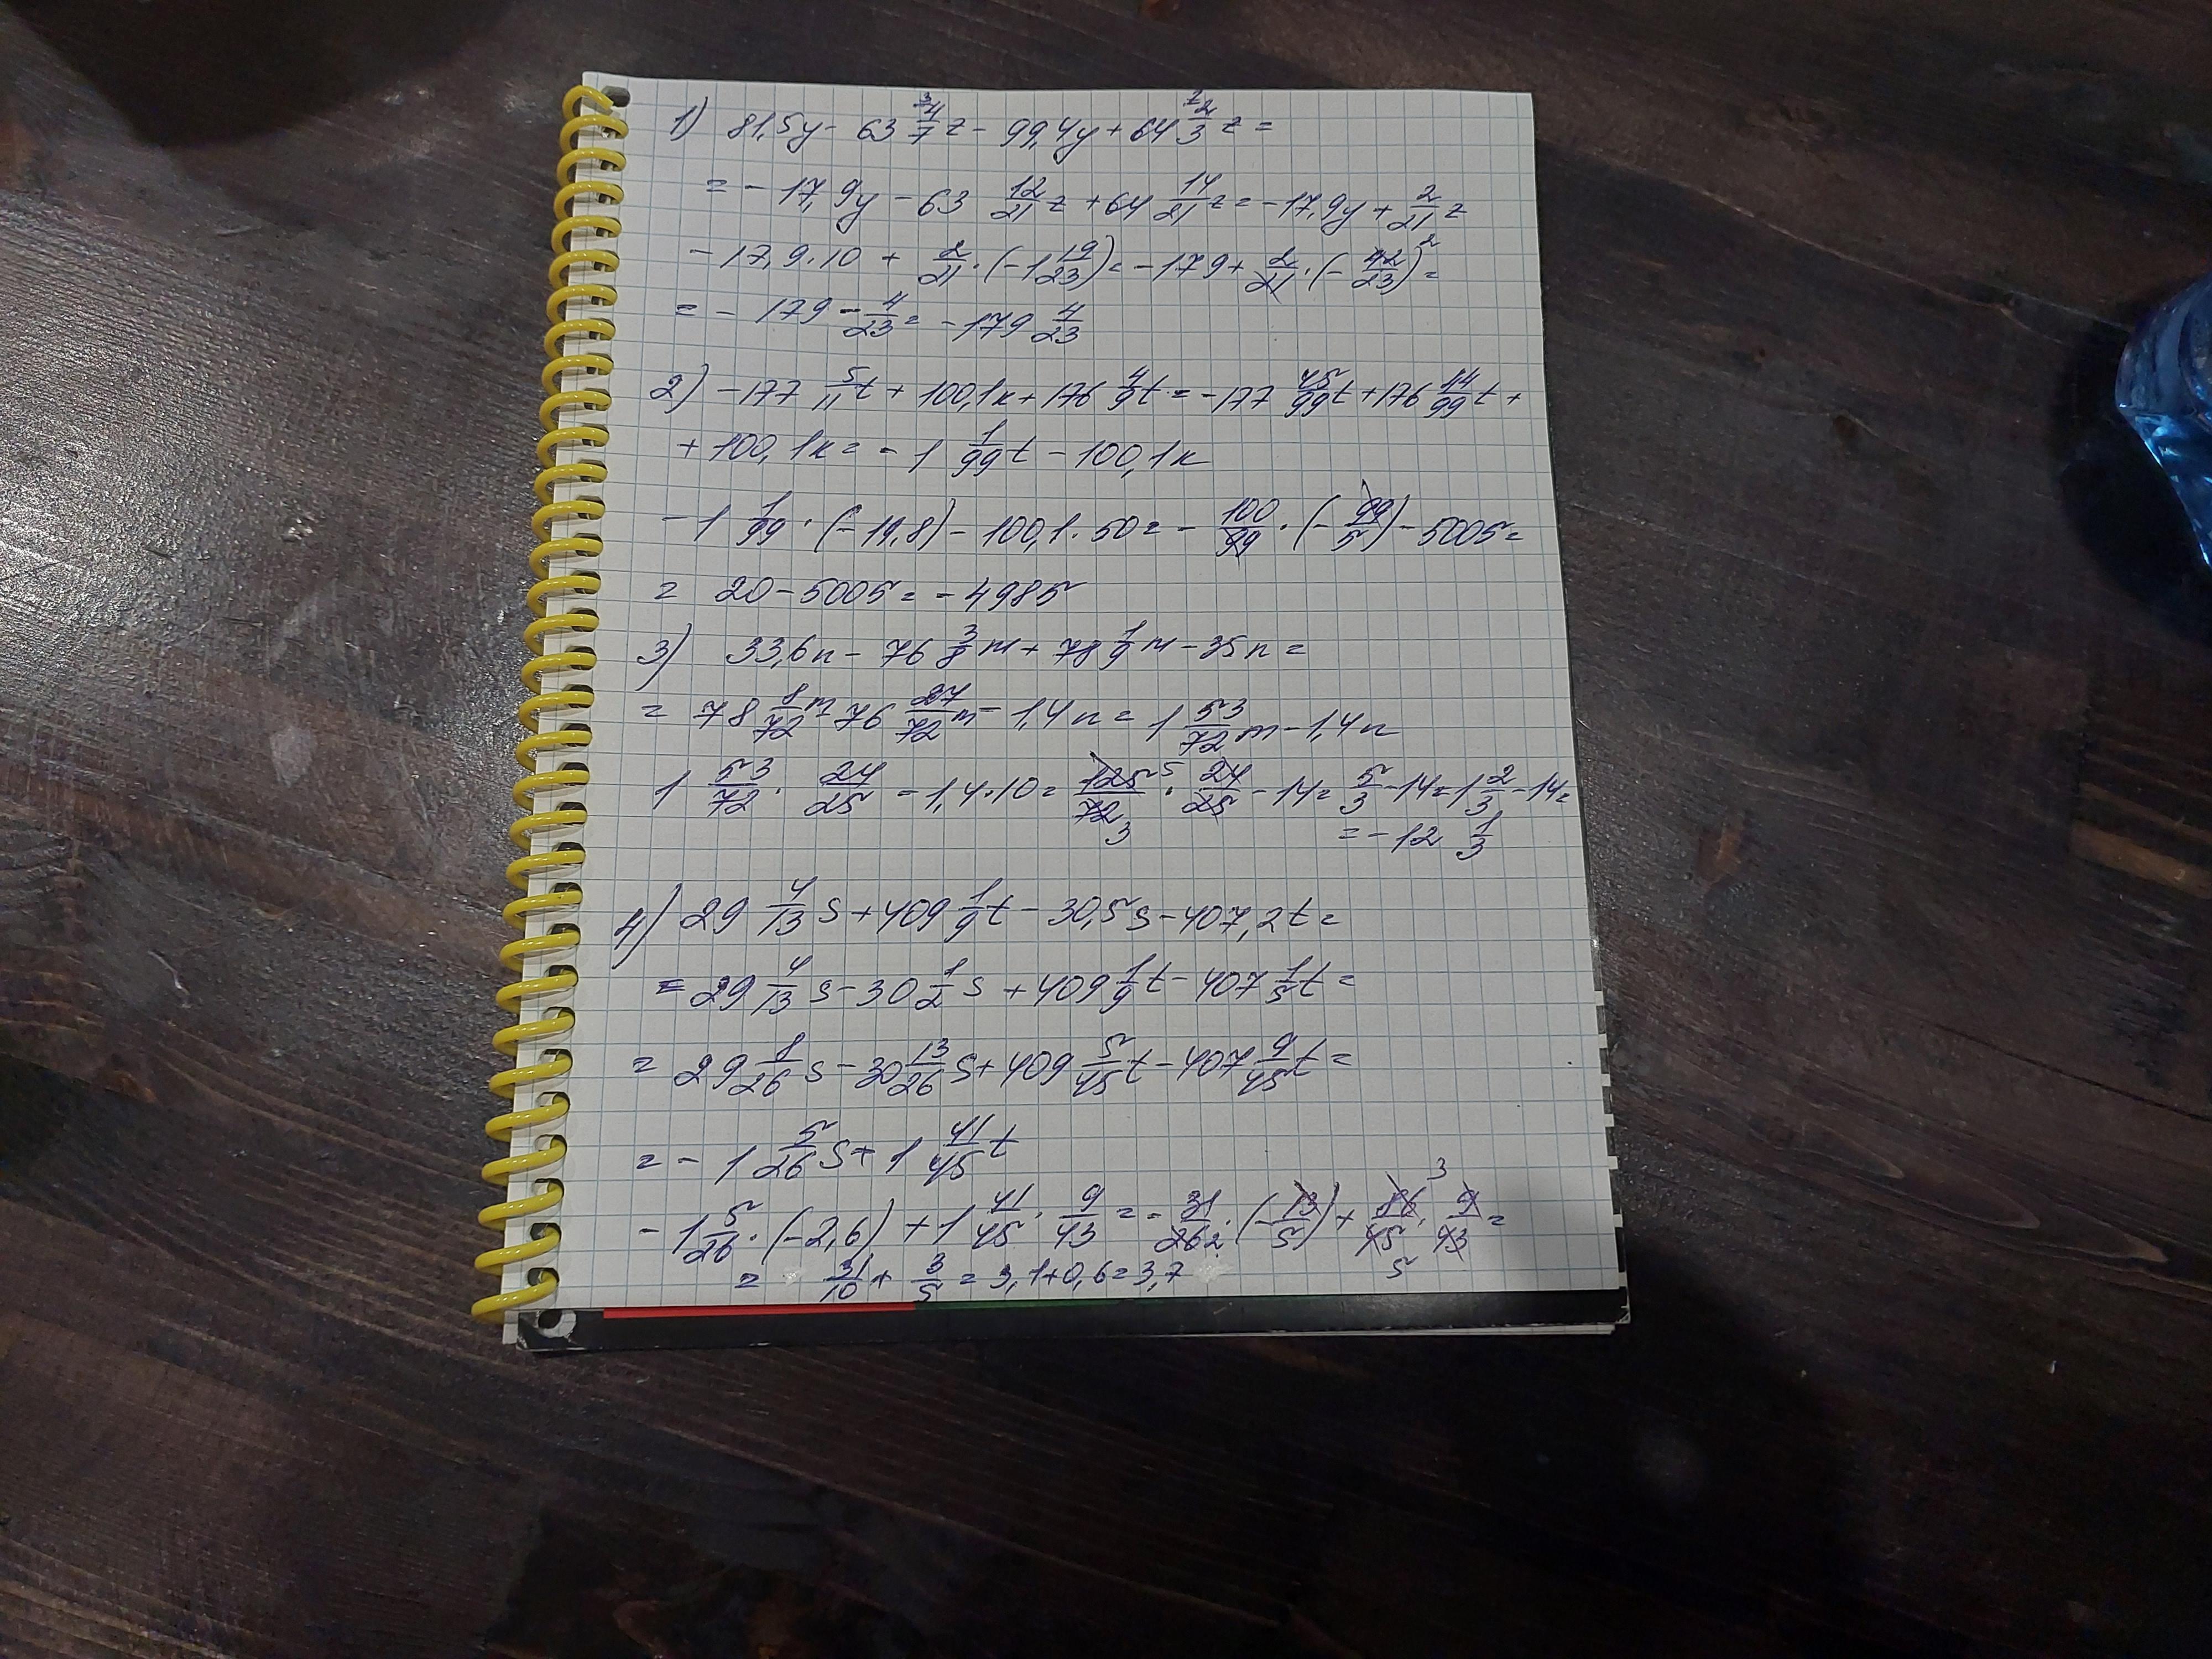 1) 81,5y - 63 4/7 z - 99,4y + 64 2/3 z =
= -17,9y - 63 12/21 z + 64 14/21 z = -17,9y + 2/21 z
-17,9·10 + 2/21 · (-1 19/23) = -179 + 2/21 · (-42/23) =
= -179 - 4/23 = -179 4/23
2) -177 5/11 t + 100,1k + 176 4/9 t = -177 45/99 t + 176 44/99 t +
+ 100,1k = -1 1/99 t - 100,1k
-1 1/99 · (-19,8) - 100,1·50 = -100/99 · (-99/5) - 5005 =
= 20 - 5005 = -4985
3) 33,6n - 76 3/8 m + 78 1/9 m - 35n =
= 78 8/72 m - 76 27/72 m - 1,4n = 1 53/72 m - 1,4n
1 53/72 · 24/25 - 1,4·10 = 125/72 · 24/25 - 14 = 5/3 - 14 = 1 2/3 - 14 =
= -12 1/3
4) 29 4/13 s + 409 1/9 t - 30,5s - 407,2t =
= 29 4/13 s - 30 1/2 s + 409 1/9 t - 407 1/5 t =
= 29 8/26 s - 30 13/26 s + 409 5/45 t - 407 9/45 t =
= -1 5/26 s + 1 41/45 t
-1 5/26 · (-2,6) + 1 41/45 · 9/43 = -31/26 · (-13/5) + 86/45 · 9/43 =
= 31/10 + 3/5 = 3,1 + 0,6 = 3,7